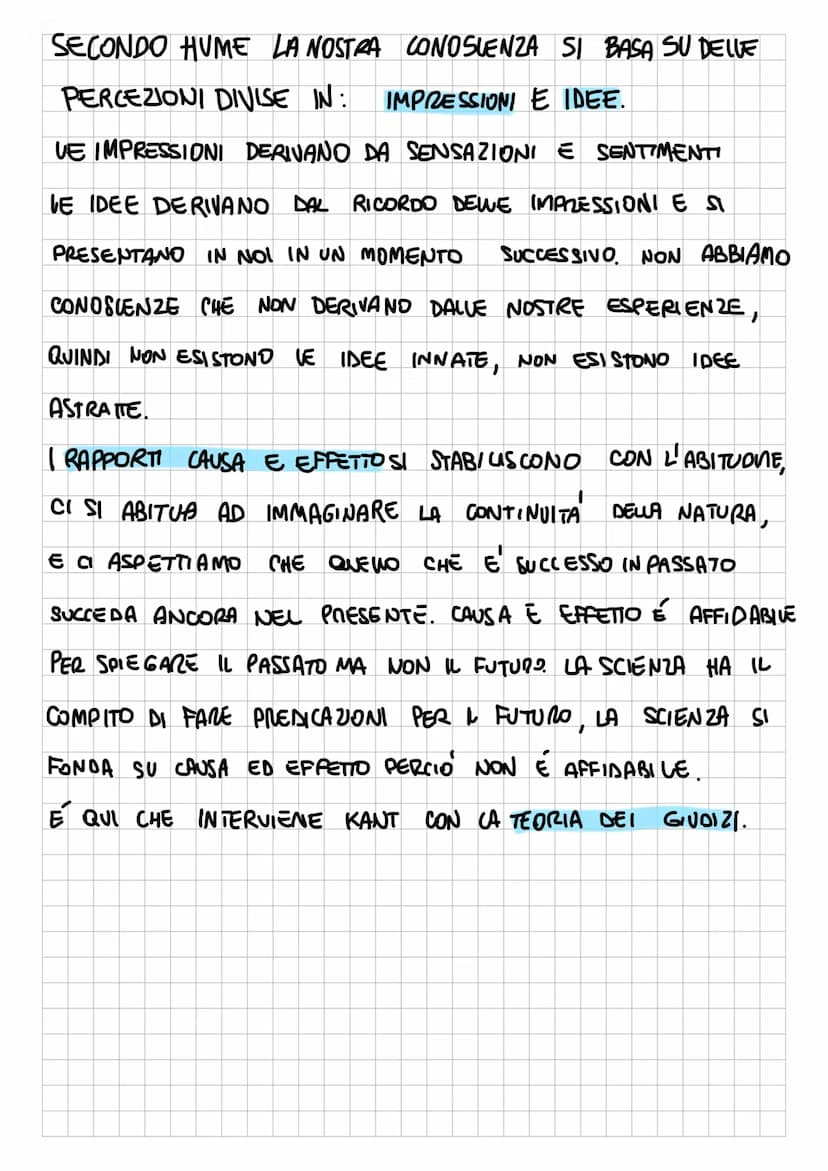 SECONDO HUME LA NOSTRA CONOSCENZA SI BASA SU DELLE
PERCEZIONI DIVISE IN: IMPRESSIONI E IDEE.
LE IMPRESSIONI DERIVANO DA SENSAZIONI E SENTIMENTI
LE IDEE DERIVANO DAL RICORDO DELLE IMPRESSIONI E SI
PRESENTANO IN NOI IN UN MOMENTO SUCCESSIVO. NON ABBIAMO
CONOSCENZE CHE NON DERIVANO DALLE NOSTRE ESPERIENZE,
QUINDI NON ESISTONO LE IDEE INNATE, NON ESISTONO IDEE
ASTRATTE.
I RAPPORTI CAUSA E EFFETTO SI STABILISCONO CON L'ABITUDINE,
CI SI ABITUA AD IMMAGINARE LA CONTINUITÀ DELLA NATURA,
E CI ASPETTIAMO CHE QUELLO CHE E' SUCCESSO IN PASSATO
SUCCEDA ANCORA NEL PRESENTE. CAUSA E EFFETTO É AFFIDABILE
PER SPIEGARE IL PASSATO MA NON IL FUTURO. LA SCIENZA HA IL
COMPITO DI FARE PREDICAZIONI PER IL FUTURO, LA SCIENZA SI
FONDA SU CAUSA ED EFFETTO PERCIÒ NON É AFFIDABILE.
É QUI CHE INTERVIENE KANT CON LA TEORIA DEI GIUDIZI.